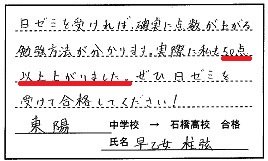 日ゼミを受ければ、確実に点数が上がる
勉強方法が分かります。実際に私も50点
以上上がりました。ぜひ日ゼミを
受けて合格してください！
東陽 中学校 → 石橋高校 合格
氏名 早乙女 柱弦